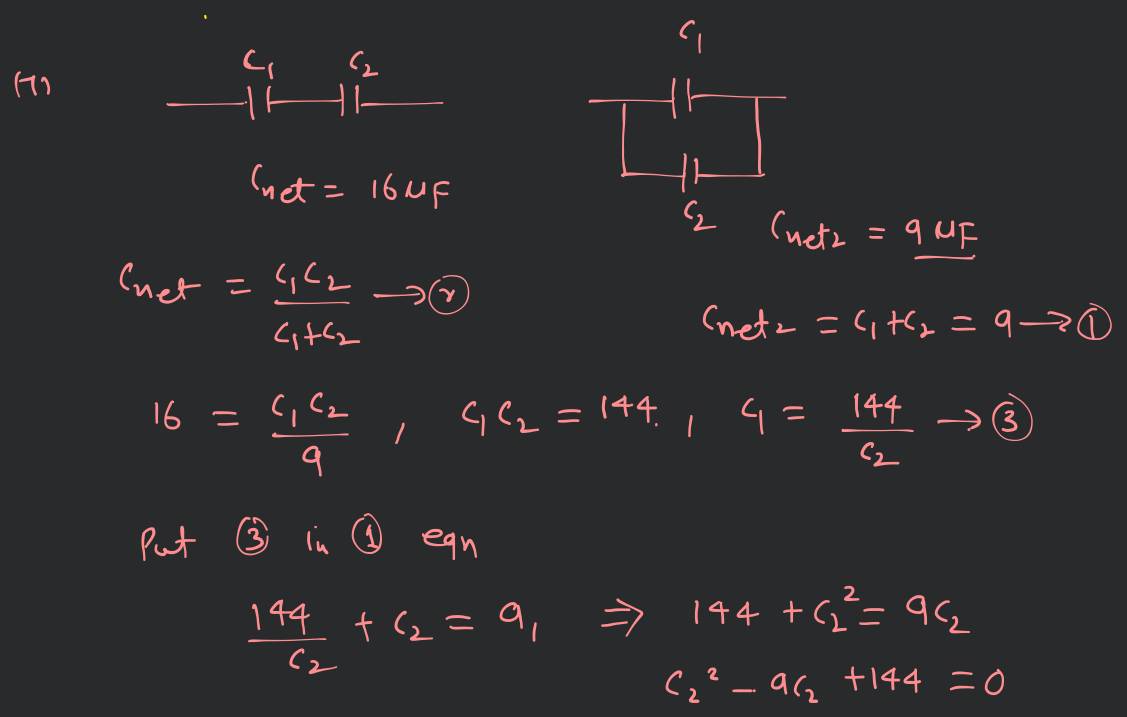 (7)
C₁ C₂
C₁
C₂
Cnet = 16 μF
Cnet₂ = 9 μF
Cnet = C₁C₂ / C₁+C₂ → ②
Cnet₂ = C₁+C₂ = 9 → ①
16 = C₁C₂ / 9 , C₁C₂ = 144. , C₁ = 144 / C₂ → ③
Put ③ in ① eqn
144 / C₂ + C₂ = 9, ⇒ 144 + C₂² = 9C₂
C₂² - 9C₂ + 144 = 0